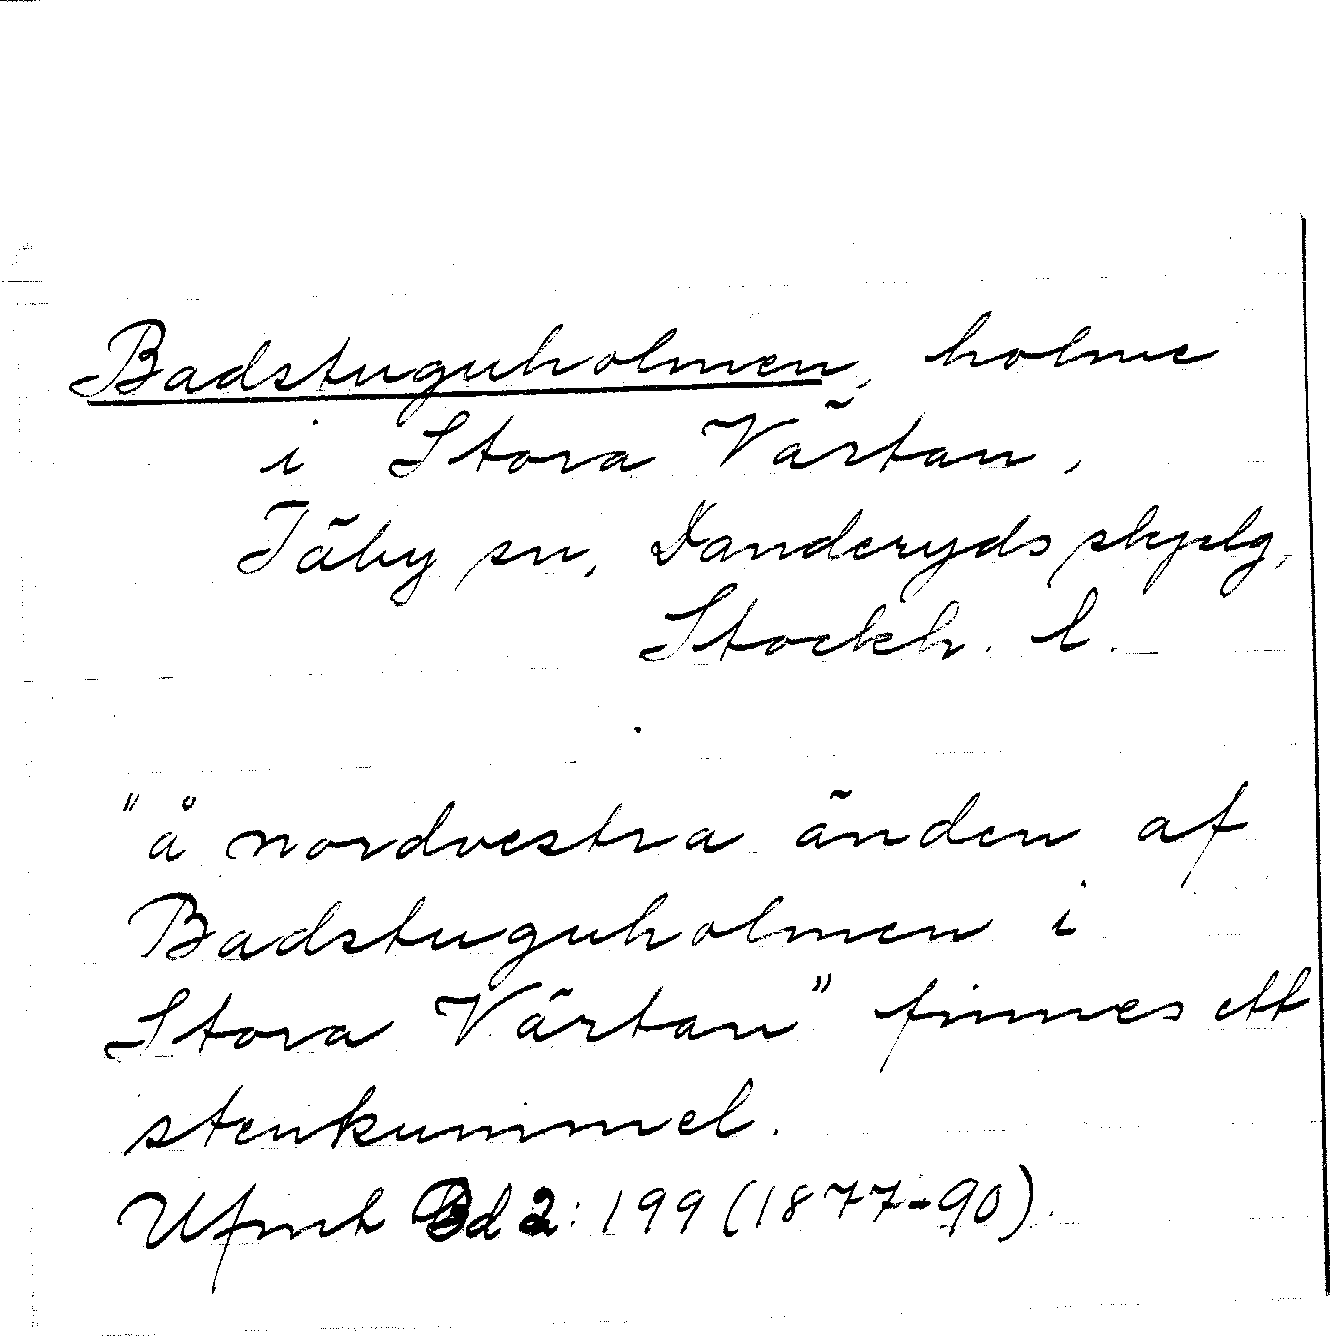 Badstuguholmen, holme
i Stora Värtan,
Täby sn, Danderyds skplg,
Stockh. l.
"å nordvestra änden af
Badstuguholmen i
Stora Värtan" finnes ett
stenkummel.
Ufmt Bd 2: 199 (1877-90).